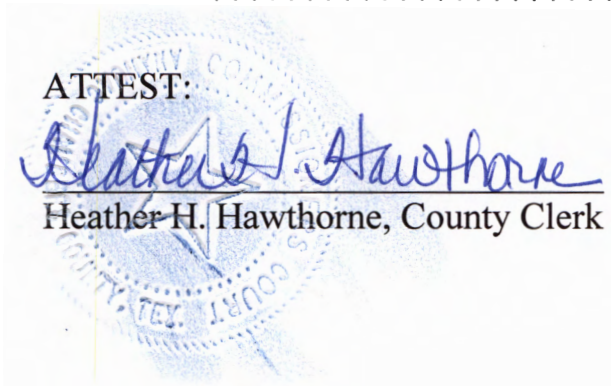 ATTEST:
Heather H. Hawthorne
Heather H. Hawthorne, County Clerk
COMMISSIONERS COURT
COUNTY, TEX.